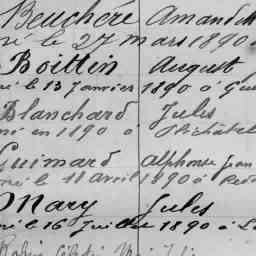 Beuchère Amand
né le 27 mars 1890 à
Boittin August
né le 13 Janvier 1890 à Gu
Blanchard Jules
né en 1890 à
Guimard Alphonse Jean
né le 11 avril 1890 à Redo
Mary Jules
né le 16 Juillet 1890 à